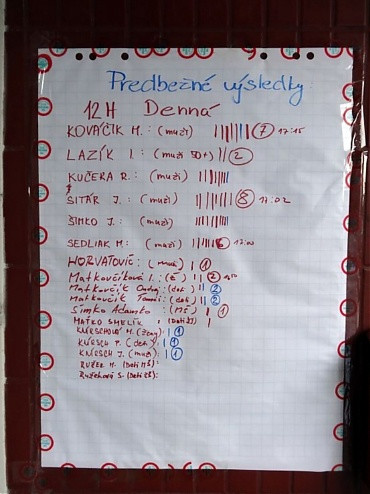 Predbežné výsledky
12H Denná
KOVÁČIK M.: (muži) 7 17:15
LAZÍK I.: (muži 50+) 2
KUČERA R.: (muži)
SITÁR J.: (muži) 8 17:02
ŠIMKO J.: (muži)
SEDLIAK M.: (muži) 6 17:00
HORVATOVIČ: (muži) 1
Matkovčíková I.: (ž) 2
Matkovčík Ondrej: (deti) 2
Matkovčík Tomáš: (deti) 2
Simko Adamko: (MŠ) 1
MATKO SMELÍK: (Deti)
M. (ženy) 1
KNIESCH P. (deti): 1
KNIESCH J. (muži) 1
RUŽEK M. (Deti MŠ):
S. (Deti ZŠ):